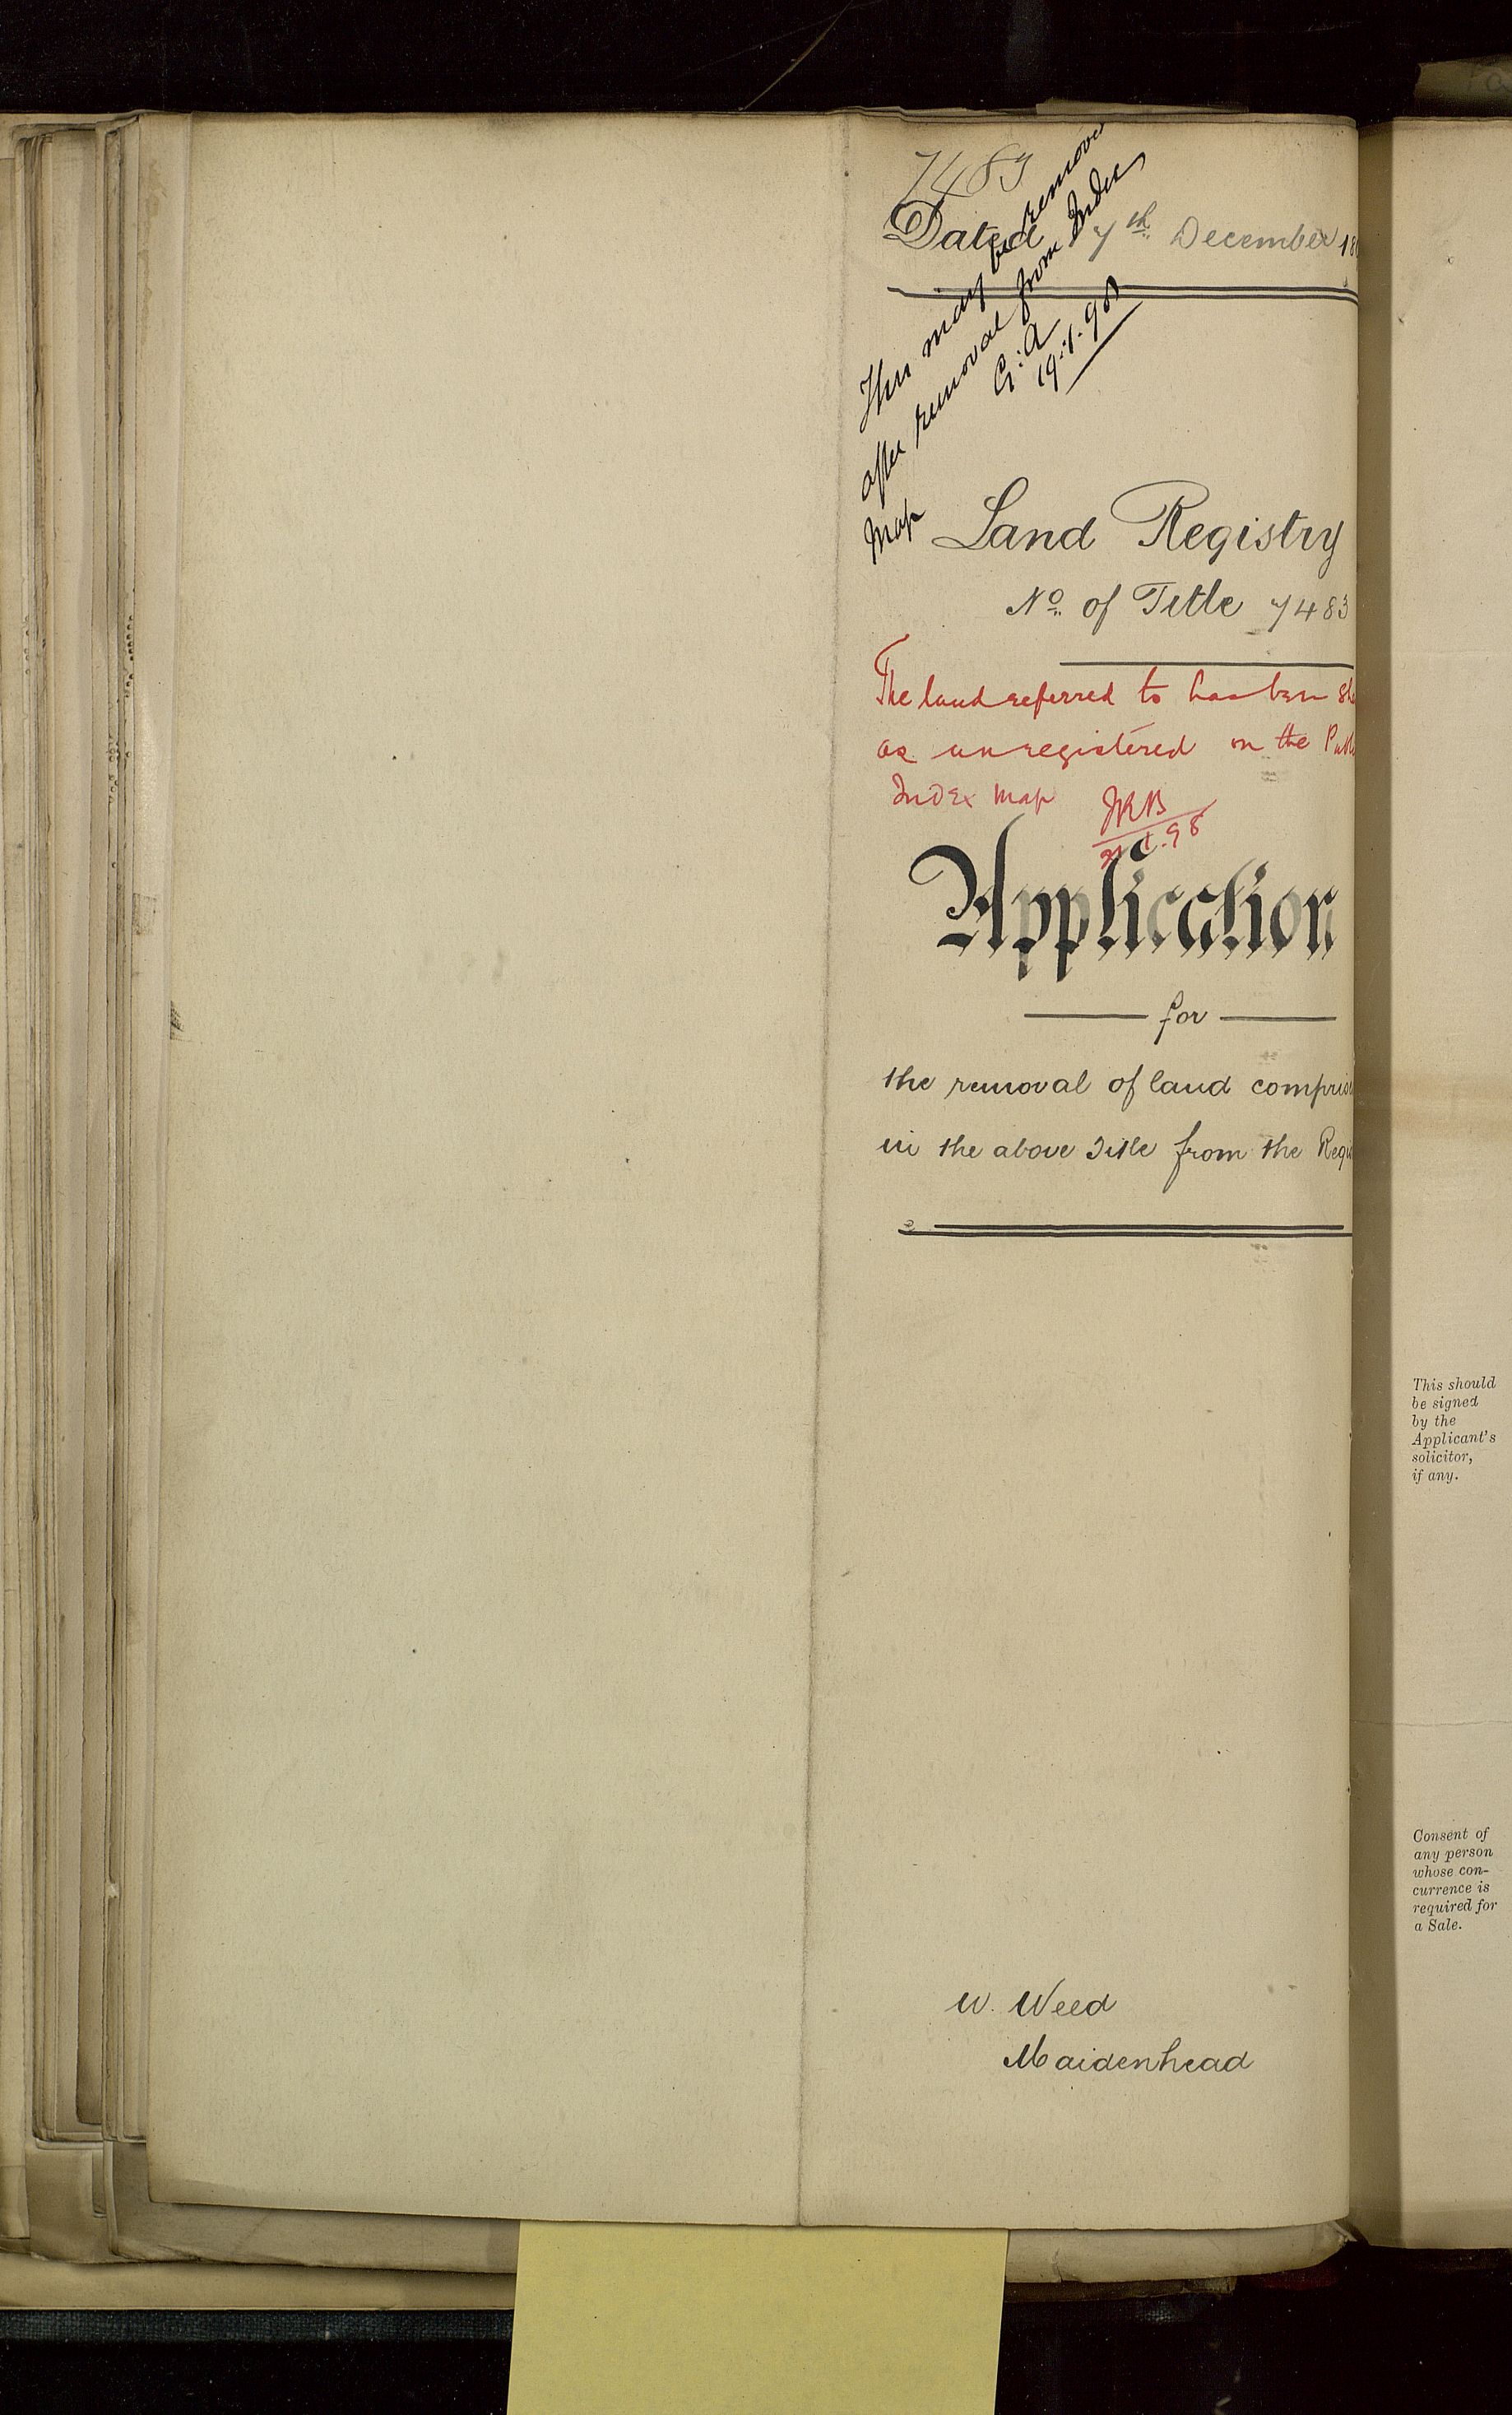 7483
Dated 7th December 18
This may be removed
after removal from Index
Map
G. A
19.1.98
Land Registry
No. of Title 7483
The land referred to has been sh
as unregistered on the Publ
Index Map
JRB
1.98
Application
for
the removal of land compris
in the above Title from the Regi
W. Weed
Maidenhead
This should
be signed
by the
Applicant's
solicitor,
if any.
Consent of
any person
whose con-
currence is
required for
a Sale.